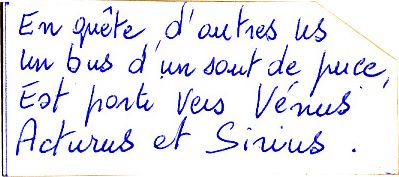 En quête d'autres us
Un bus d'un saut de puce,
Est porté vers Vénus
Acturus et Sirius.